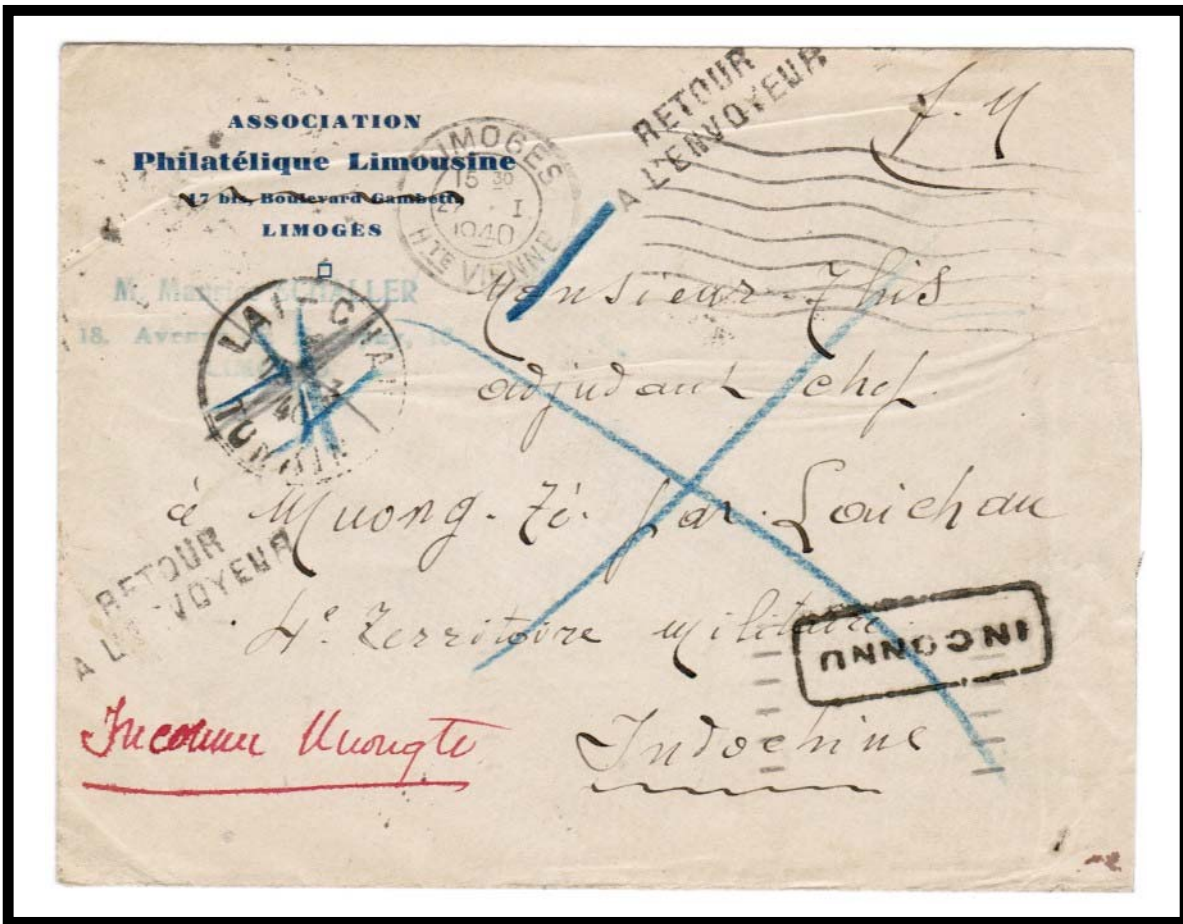 ASSOCIATION
Philatélique Limousine
17 bis, Boulevard Gambetta
LIMOGES
LIMOGES
15 30
27 I
1940
HTE VIENNE
RETOUR
A L'ENVOYEUR
f. M
M. Maurice SCHALLER
18. Aven
LAI-CHAU
40
TONKIN
Monsieur This
adjudant chef
à Muong-Té par Laichau
4e Territoire militaire
Indochine
RETOUR
A L'ENVOYEUR
INCONNU
Inconnu Muongte